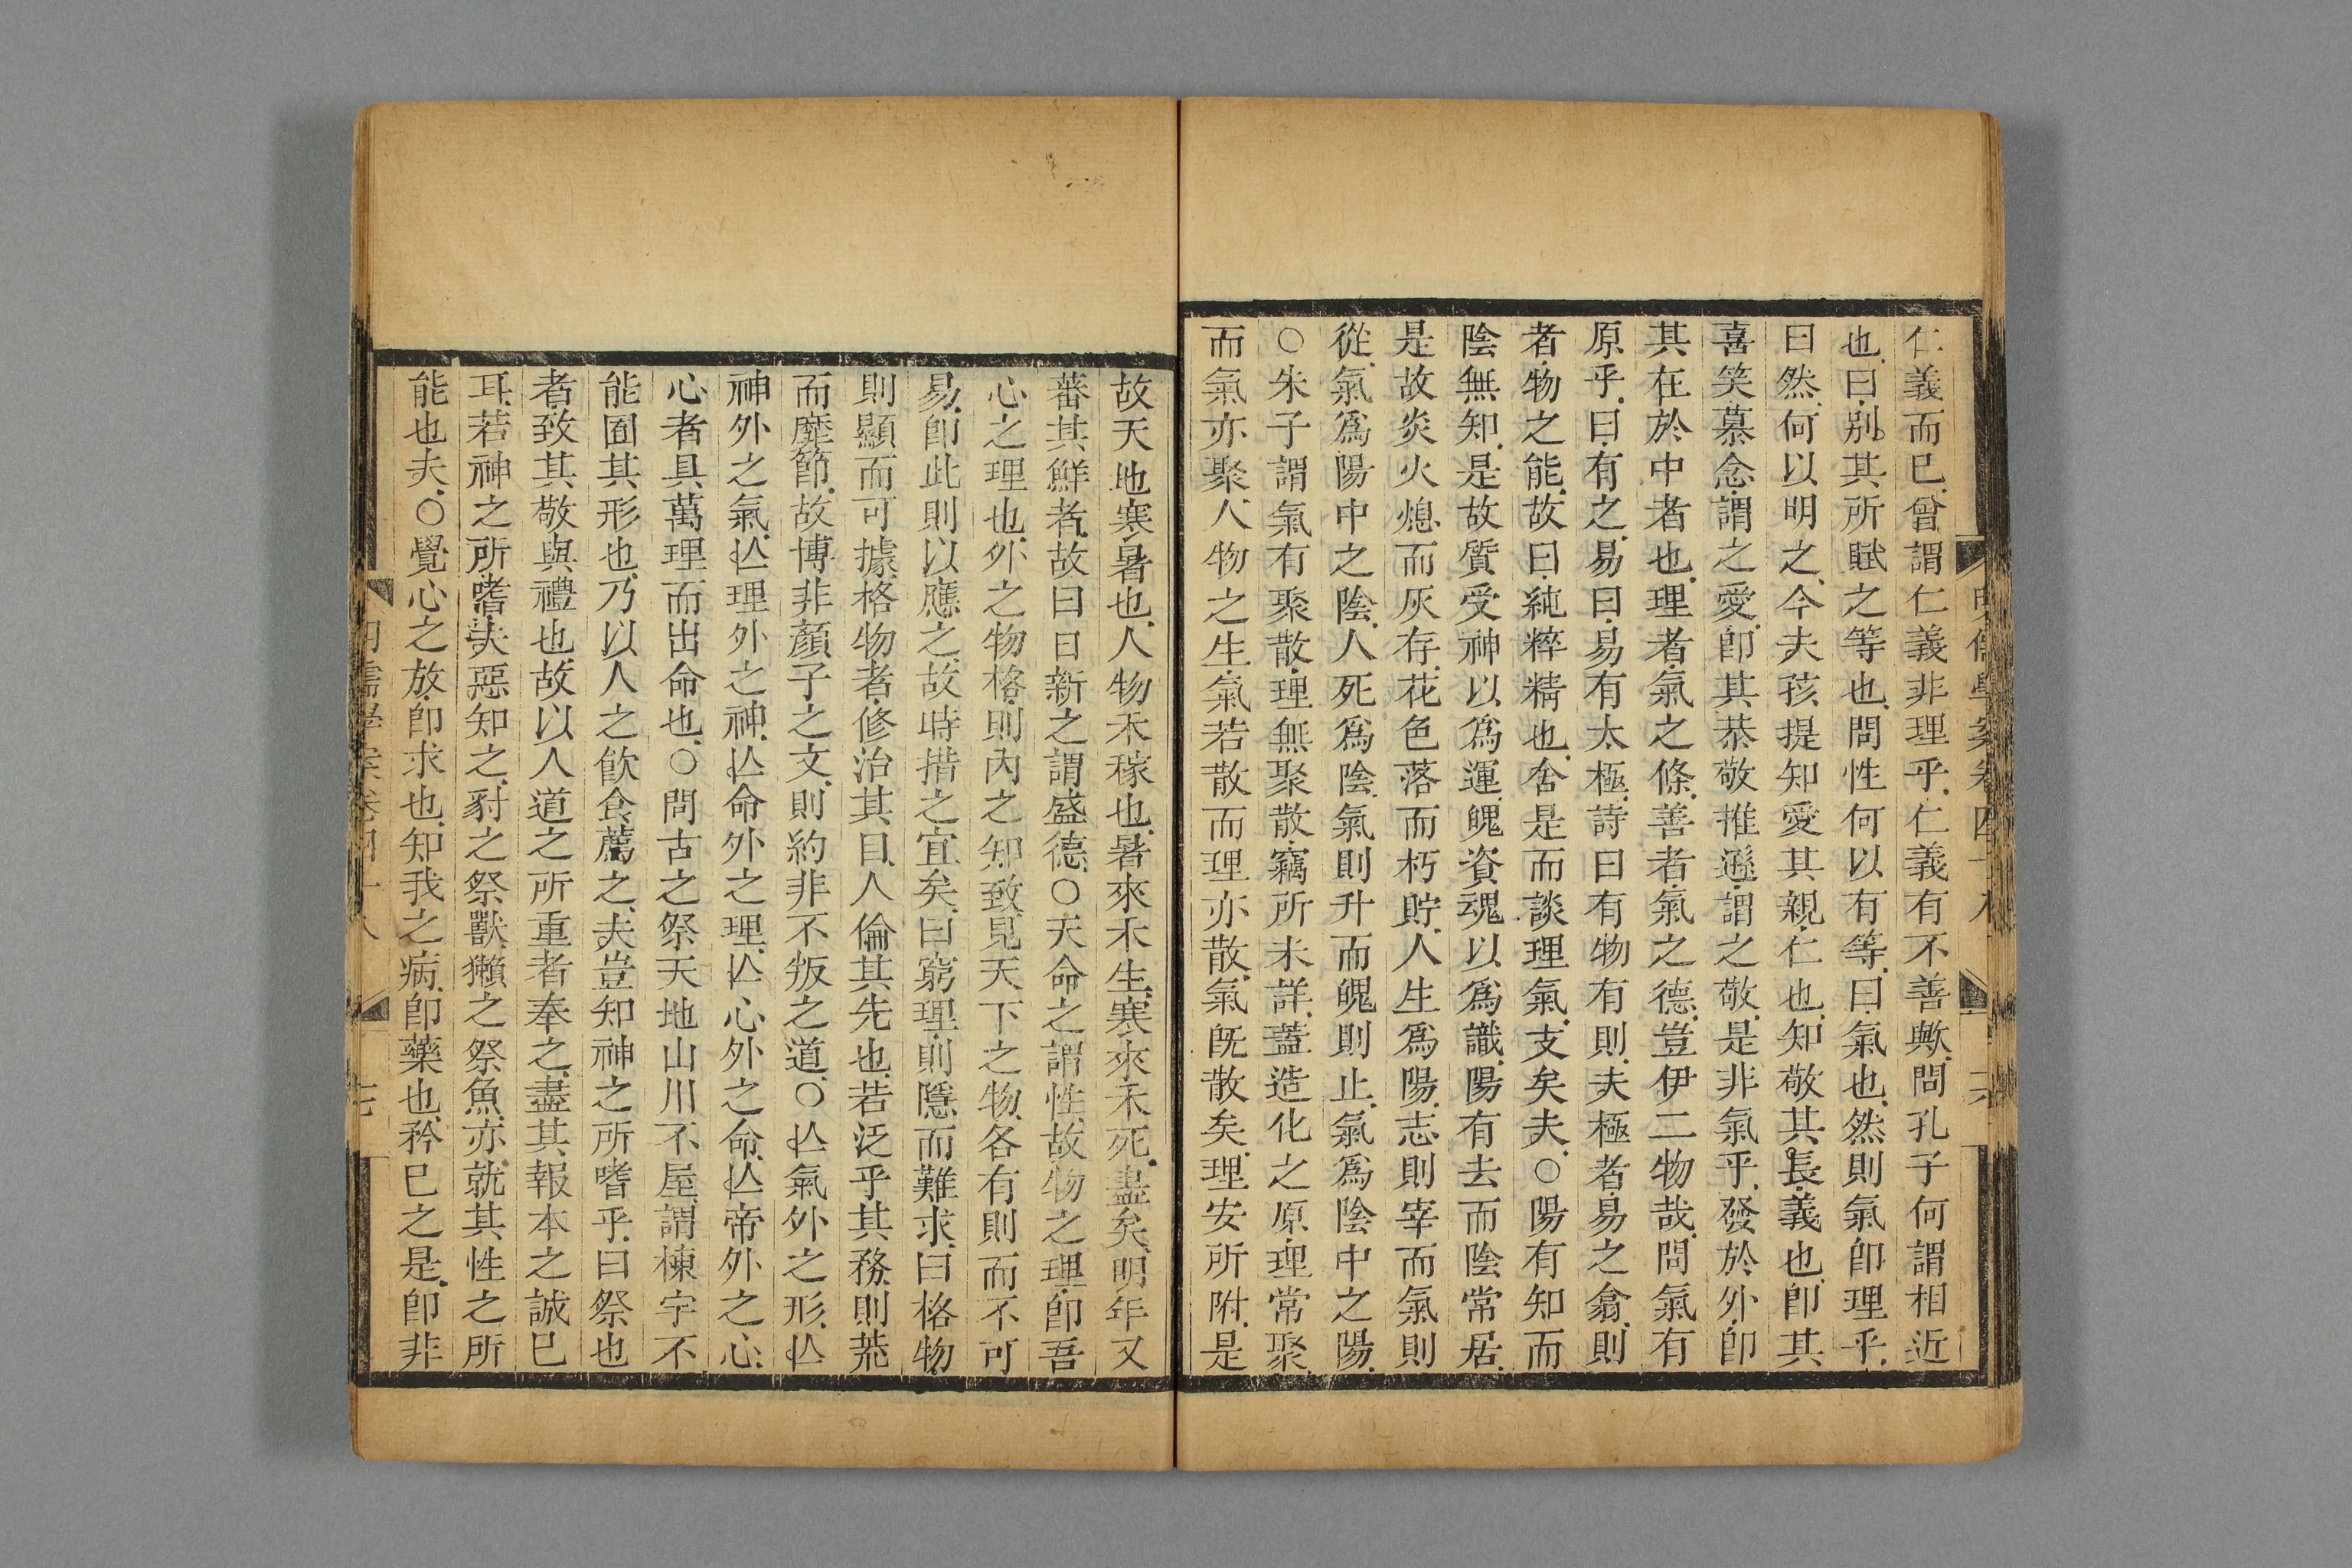 仁義而已.曾謂仁義非理乎.仁義有不善歟.問孔子何謂相近
也.曰.別其所賦之等也.問性何以有等.曰.氣也.然則氣卽理乎.
曰然.何以明之.今夫孩提知愛其親.仁也.知敬其長.義也.卽其
喜笑慕念.謂之愛.卽其恭敬推遜.謂之敬.是非氣乎.發於外.卽
其在於中者也.理者.氣之條.善者.氣之德.豈伊二物哉.問氣有
原乎.曰.有之.易曰.易有太極.詩曰.有物有則.夫極者.易之翕.則
者.物之能.故曰.純粹精也.舍是而談理氣.支矣夫.○陽有知而
陰無知.是故質受神以爲運.魄資魂以爲識.陽有去而陰常居.
是故炎火熄而灰存.花色落而朽貯.人生爲陽.志則宰而氣則
從.氣爲陽中之陰.人死爲陰.氣則升而魄則止.氣爲陰中之陽.
○朱子謂氣有聚散.理無聚散.竊所未詳.蓋造化之原.理常聚.
而氣亦聚.人物之生.氣若散而理亦散.氣旣散矣.理安所附.是
故天地寒暑也.人物禾稼也.暑來禾生.寒來禾死.盡矣.明年又
蕃其鮮者.故曰日新之謂盛德.○天命之謂性.故物之理.卽吾
心之理也.外之物格.則內之知致.見天下之物.各有則而不可
易.卽此則以應之.故時措之宜矣.曰.窮理.則隱而難求.曰格物.
則顯而可據.格物者.修治其目.人倫其先也.若泛乎其務.則荒
而靡節.故博非顏子之文.則約非不叛之道.○亾氣外之形.亾
神外之氣.亾理外之神.亾命外之理.亾心外之命.亾帝外之心.
心者具萬理而出命也.○問古之祭天地山川不屋.謂棟宇不
能囿其形也.乃以人之飮食薦之.夫豈知神之所嗜乎.曰祭也
者.致其敬與禮也.故以人道之所重者奉之.盡其報本之誠已
耳.若神之所嗜.夫惡知之.豺之祭獸.獺之祭魚.亦就其性之所
能也夫.○覺心之放.卽求也.知我之病.卽藥也.矜已之是.卽非